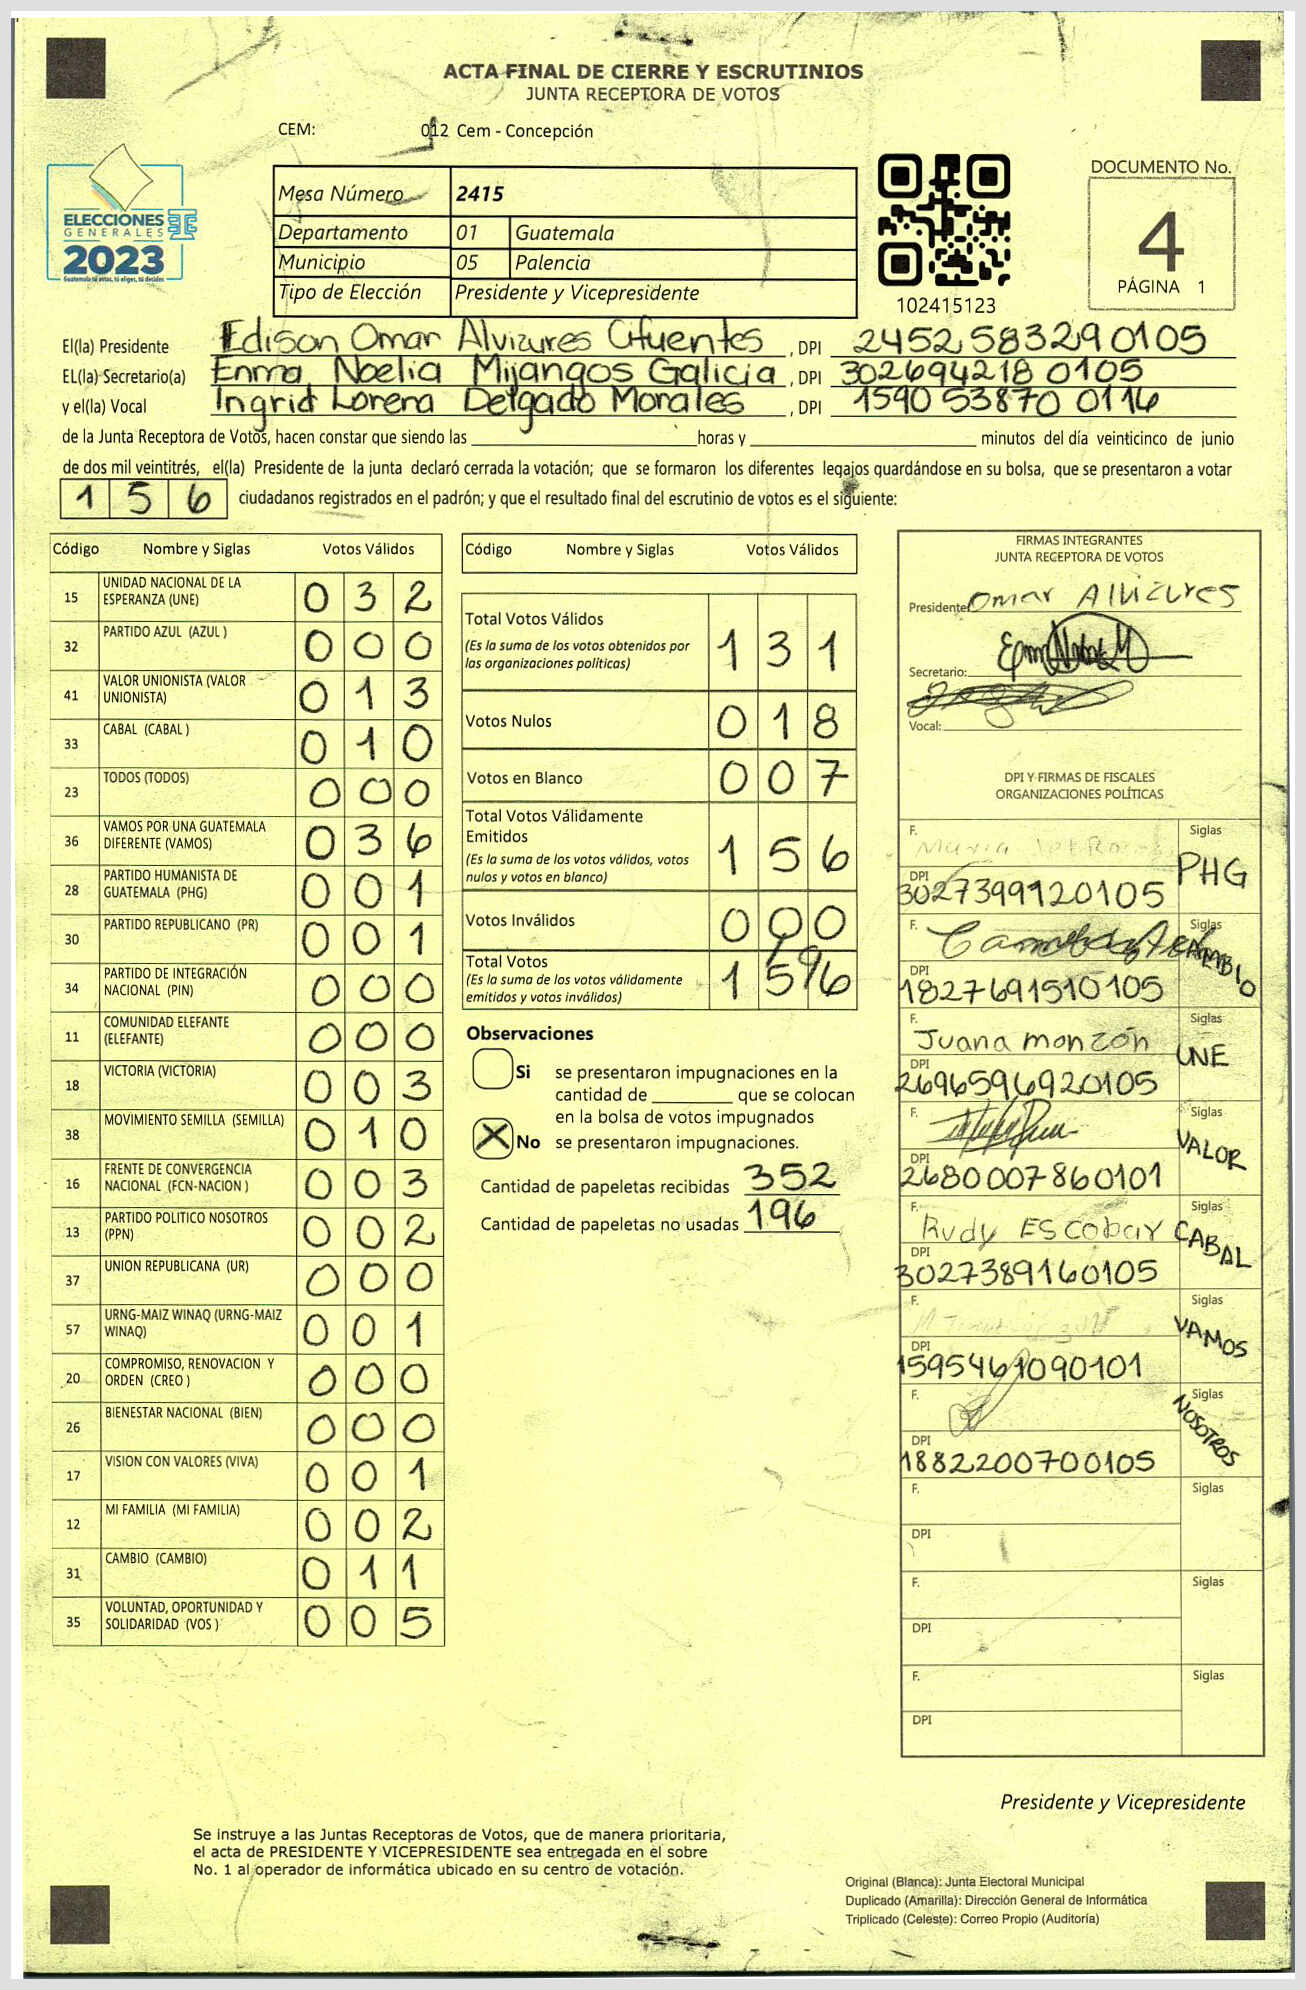 ACTA FINAL DE CIERRE Y ESCRUTINIOS
JUNTA RECEPTORA DE VOTOS
CEM: 012 Cem - Concepción
ELECCIONES
GENERALES
2023
Guatemala tú votas, tú eliges, tú decides
Mesa Número 2415
Departamento 01 Guatemala
Municipio 05 Palencia
Tipo de Elección Presidente y Vicepresidente
102415123
DOCUMENTO No.
4
PÁGINA 1
El(la) Presidente Edison Omar Alvizures Cifuentes , DPI 2452583290105
EL(la) Secretario(a) Enma Noelia Mijangos Galicia , DPI 3026942180105
y el(la) Vocal Ingrid Lorena Delgado Morales , DPI 1590 53870 0116
de la Junta Receptora de Votos, hacen constar que siendo las horas y minutos del día veinticinco de junio
de dos mil veintitrés, el(la) Presidente de la junta declaró cerrada la votación; que se formaron los diferentes legajos guardándose en su bolsa, que se presentaron a votar
156 ciudadanos registrados en el padrón; y que el resultado final del escrutinio de votos es el siguiente:
Código Nombre y Siglas Votos Válidos
15 UNIDAD NACIONAL DE LA ESPERANZA (UNE) 032
32 PARTIDO AZUL (AZUL ) 000
41 VALOR UNIONISTA (VALOR UNIONISTA) 013
33 CABAL (CABAL ) 010
23 TODOS (TODOS) 000
36 VAMOS POR UNA GUATEMALA DIFERENTE (VAMOS) 036
28 PARTIDO HUMANISTA DE GUATEMALA (PHG) 001
30 PARTIDO REPUBLICANO (PR) 001
34 PARTIDO DE INTEGRACIÓN NACIONAL (PIN) 000
11 COMUNIDAD ELEFANTE (ELEFANTE) 000
18 VICTORIA (VICTORIA) 003
38 MOVIMIENTO SEMILLA (SEMILLA) 010
16 FRENTE DE CONVERGENCIA NACIONAL (FCN-NACION ) 003
13 PARTIDO POLITICO NOSOTROS (PPN) 002
37 UNION REPUBLICANA (UR) 000
57 URNG-MAIZ WINAQ (URNG-MAIZ WINAQ) 001
20 COMPROMISO, RENOVACION Y ORDEN (CREO ) 000
26 BIENESTAR NACIONAL (BIEN) 000
17 VISION CON VALORES (VIVA) 001
12 MI FAMILIA (MI FAMILIA) 002
31 CAMBIO (CAMBIO) 011
35 VOLUNTAD, OPORTUNIDAD Y SOLIDARIDAD (VOS ) 005
Código Nombre y Siglas Votos Válidos
Total Votos Válidos 131
(Es la suma de los votos obtenidos por
las organizaciones políticas)
Votos Nulos 018
Votos en Blanco 007
Total Votos Válidamente
Emitidos 156
(Es la suma de los votos válidos, votos
nulos y votos en blanco)
Votos Inválidos 000
Total Votos
(Es la suma de los votos válidamente
emitidos y votos inválidos)
Observaciones
Si se presentaron impugnaciones en la
cantidad de que se colocan
en la bolsa de votos impugnados
X No se presentaron impugnaciones.
Cantidad de papeletas recibidas 352
Cantidad de papeletas no usadas 196
FIRMAS INTEGRANTES
JUNTA RECEPTORA DE VOTOS
Presidente: Omar Alvizures
Secretario:
Vocal:
DPI Y FIRMAS DE FISCALES
ORGANIZACIONES POLÍTICAS
F. Siglas PHG
DPI 3027399120105
F. Siglas CAMBIO
DPI 1827691510105
F. Juana monzón Siglas UNE
DPI 2696596920105
F. Siglas VALOR
DPI 2680007860101
F. Rudy Escobar Siglas CABAL
DPI 3027389160105
F. Siglas VAMOS
DPI 1595461090101
F. Siglas NOSOTROS
DPI 1882200700105
F. Siglas
DPI
F. Siglas
DPI
F. Siglas
DPI
Presidente y Vicepresidente
Se instruye a las Juntas Receptoras de Votos, que de manera prioritaria,
el acta de PRESIDENTE Y VICEPRESIDENTE sea entregada en el sobre
No. 1 al operador de informática ubicado en su centro de votación.
Original (Blanca): Junta Electoral Municipal
Duplicado (Amarilla): Dirección General de Informática
Triplicado (Celeste): Correo Propio (Auditoría)